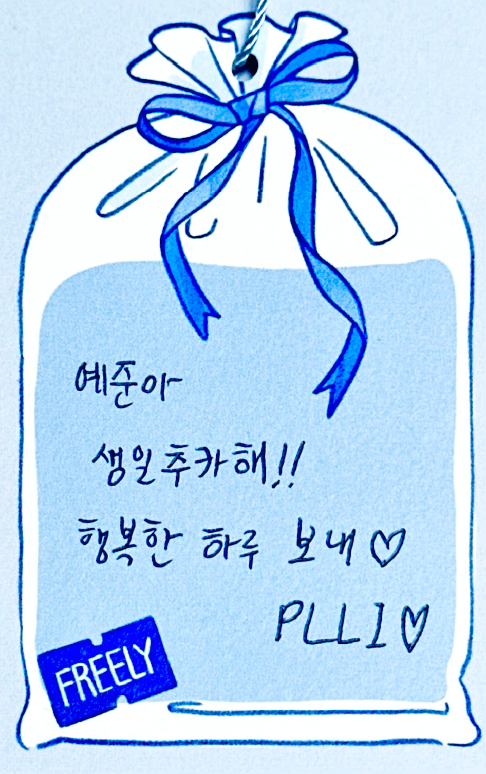 예준아
생일추카해!!
행복한 하루 보내♡
PLLI♡
FREELY